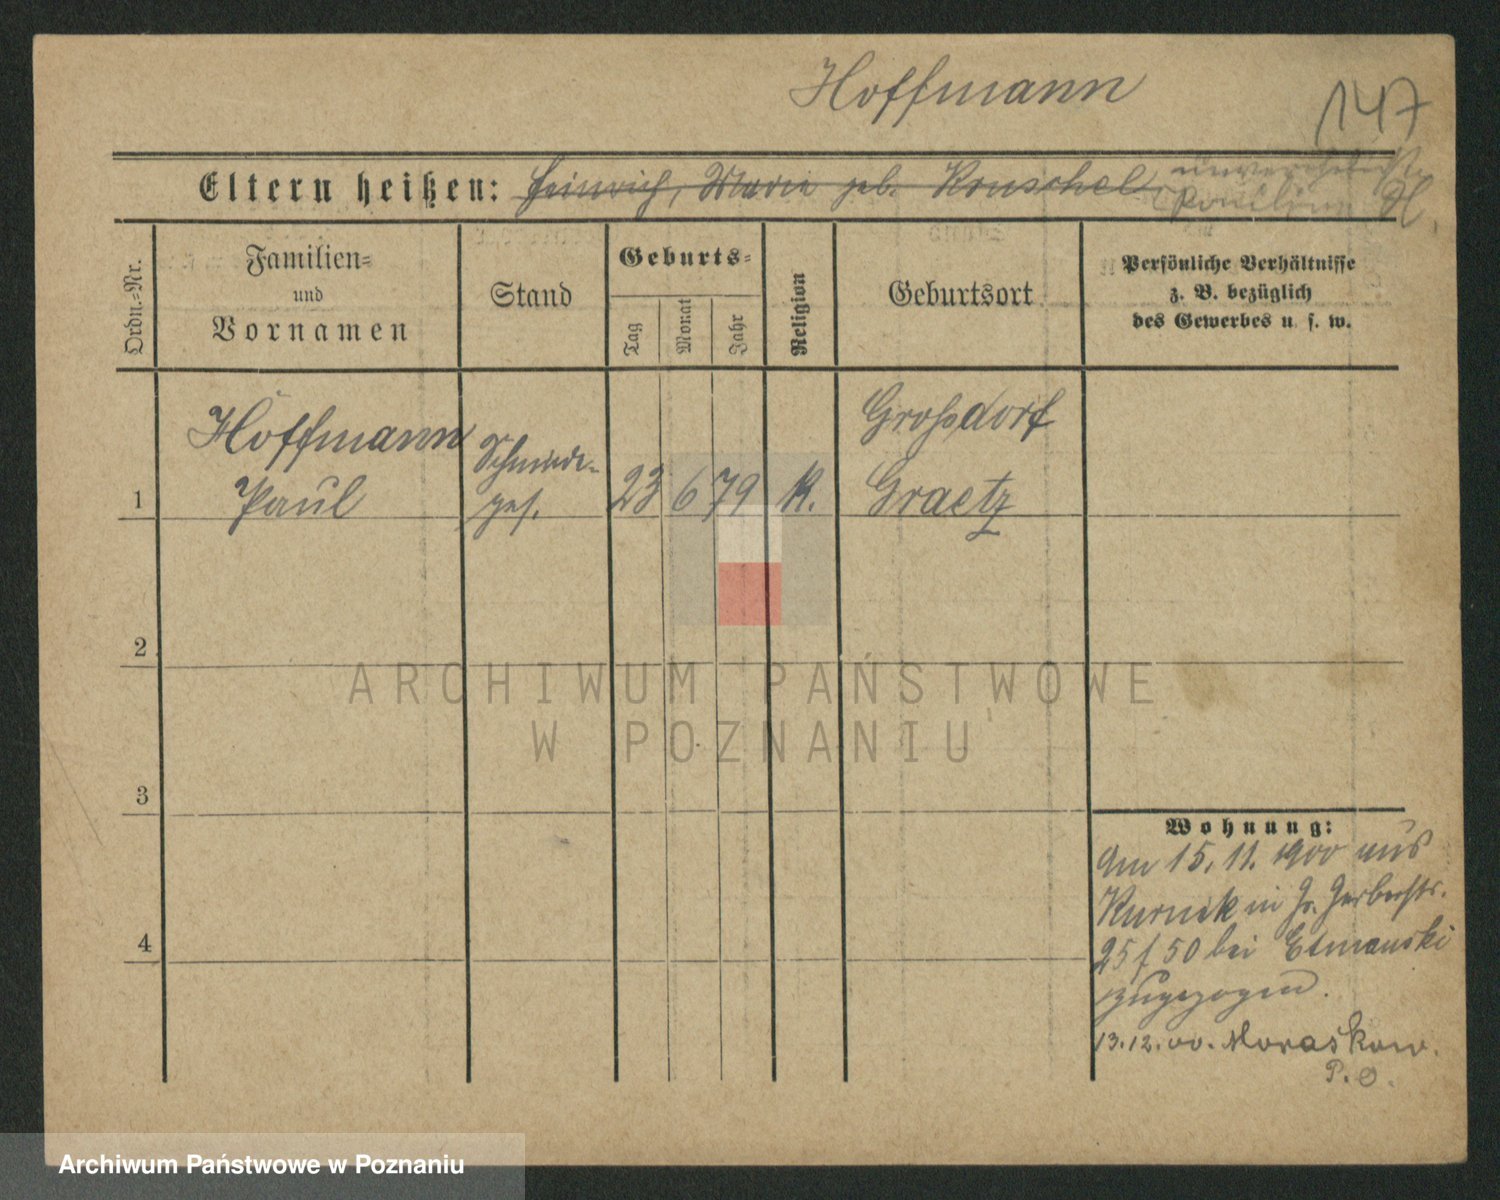 Hoffmann
147
Eltern heißen: Heinrich, Maria geb. Kruschel unverehelichte
H.
Ordn.-Nr.
Familien-
und
Vornamen
Stand
Geburts-
Tag
Monat
Jahr
Religion
Geburtsort
Persönliche Verhältnisse
z. B. bezüglich
des Gewerbes u. s. w.
1
Hoffmann
Paul
Schmiede-
ges.
23
6
79
K.
Grossdorf
Graetz
2
3
4
Wohnung:
Am 15. 11. 1900 aus
Kurnik in Gr. Gerberstr.
25 / 50 bei Etmanski
zugezogen.
13.12.00. Moraskow.
P. O.
ARCHIWUM PAŃSTWOWE
W POZNANIU
Archiwum Państwowe w Poznaniu